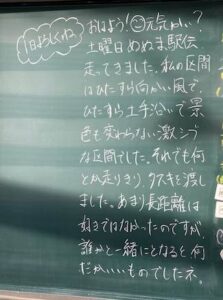 1日よろしくね
おはよう!元気かい?
土曜日めぬま駅伝
走ってきました。私の区間
はひたすら向かい風で、
ひたすら土手沿いで景
色も変わらない激シブ
な区間でした。それでも何
とか走りきり、タスキを渡し
ました。あまり長距離は
好きではなかったのですが、
誰かと一緒にとなると何
だかいいものでしたネ。